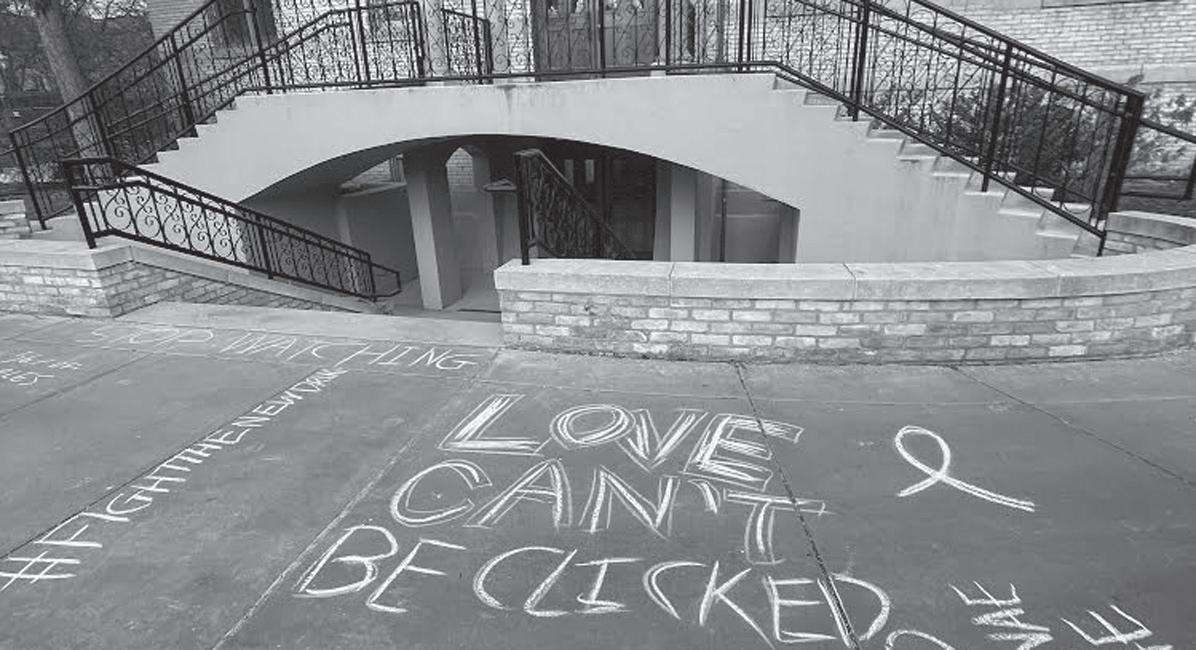 STOP WATCHING
#FIGHTTHENEWDRUG
LOVE
CAN'T
BE CLICKED